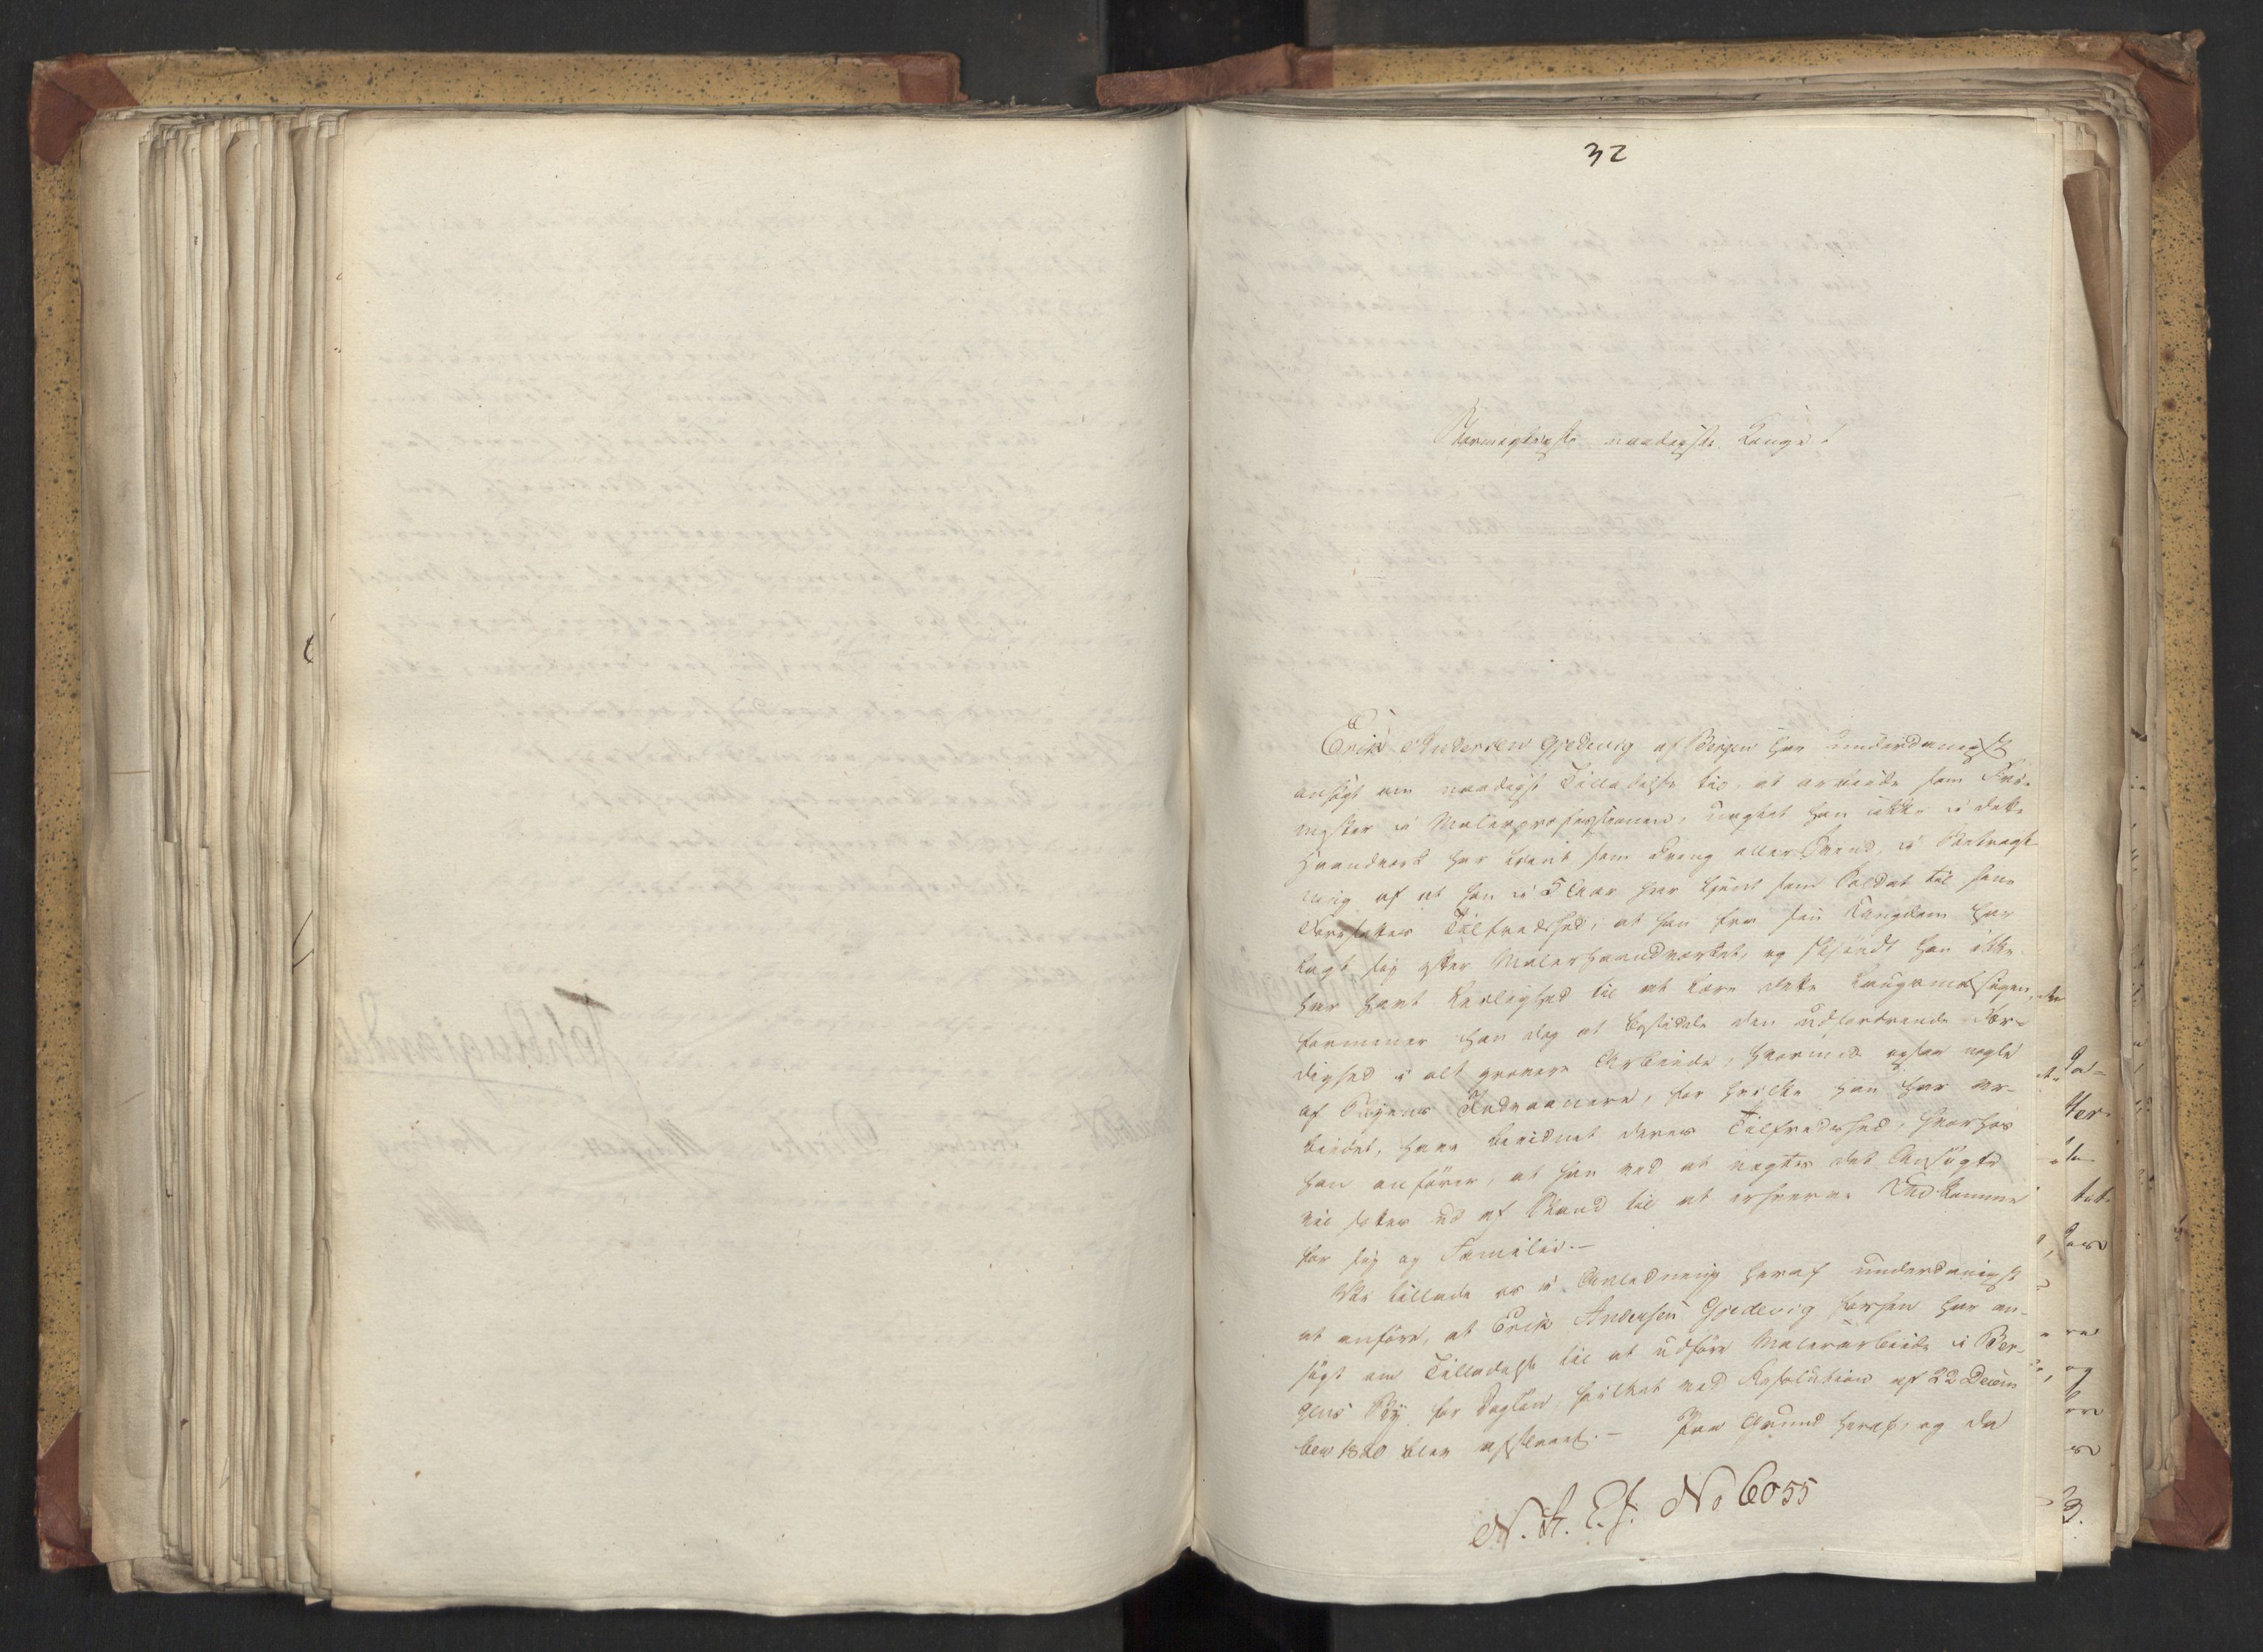 32
Stormægtigste naadigste Konge!
Erik Andersen Gjedevig af Bergen har underdanigst
ansøgt om naadigst Tilladelse til, at arbeide som Fri-
mester i Malerprofessionen, uagtet han ikke i dette
Haandværk har tjent som Dreng eller Svend, i Betragt-
ning af at han i 5 Aar har tjent som Soldat til sine
Foresattes Tilfredshed, at han fra sin Ungdom har
lagt sig efter Malerhaandværket, og skjøndt han ikke
har havt Leilighed til at lære dette Laugsmæssigen,
formener han dog at besidde den udfordrende Fær-
dighed i alt grovere Arbeide, hvormed ogsaa nogle
af Byens Indvaanere, for hvilke han har ar-
beidet, have bevidnet deres Tilfredshed, hvorhos
han anfører, at han ved at nægtes det Ansøgte
vil sættes ud af Stand til at erhverve Udkomme
for sig og Familie.—
Vi tillade os i Anledning heraf underdanigst
at anføre, at Erik Andersen Gjedevig forhen har an-
søgt om Tilladelse til at udføre Malerarbeide i Ber-
gens By for Dagløn, hvilket ved Resolution af 22 Decem
ber 1820 blev afslaaet.— Paa Grund heraf, og da
N. A. E. J. No 6055